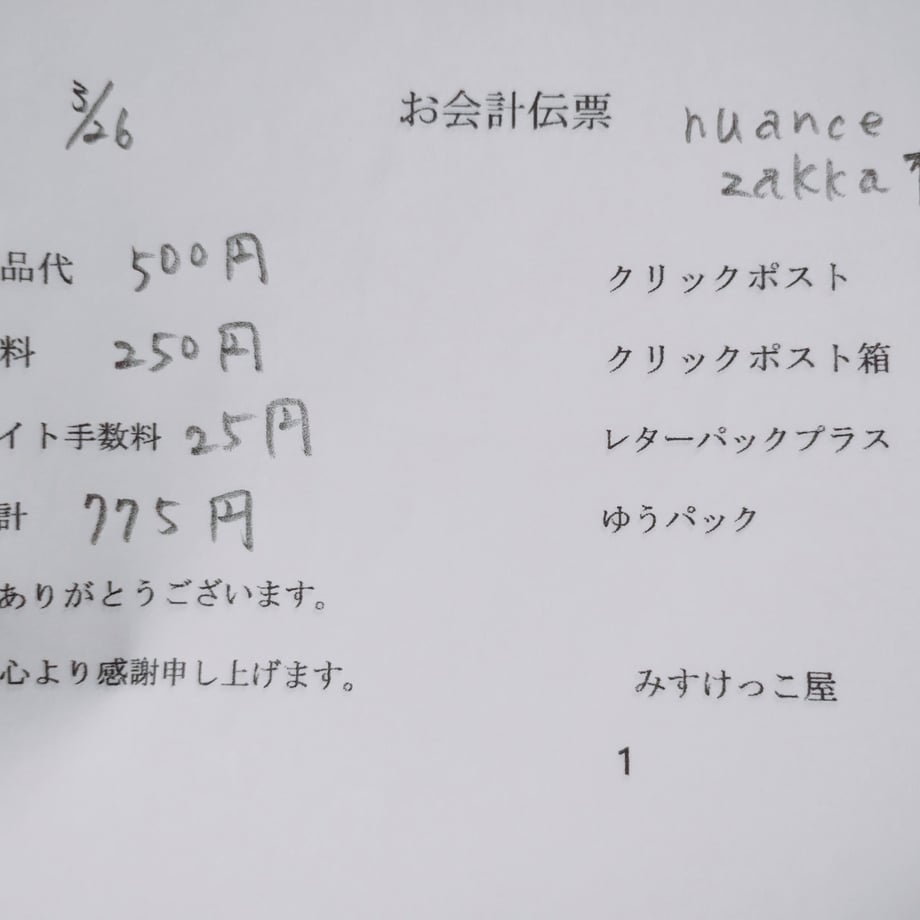 3/26
お会計伝票
nuance
zakka
品代 500円
クリックポスト
料 250円
クリックポスト箱
イト手数料 25円
レターパックプラス
計 775円
ゆうパック
ありがとうございます。
心より感謝申し上げます。
みすけっこ屋
1